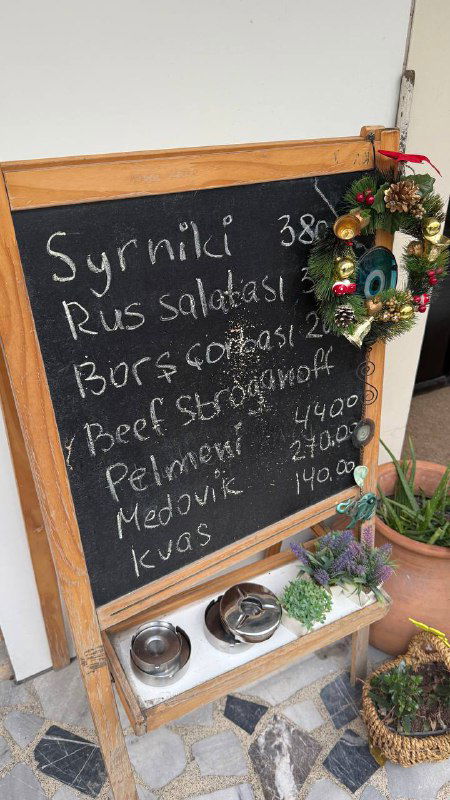 Syrniki 380
Rus salatası
Borş çorbası
Beef Stroganoff
Pelmeni 440.00
Medovik 270.00
kvas 140.00